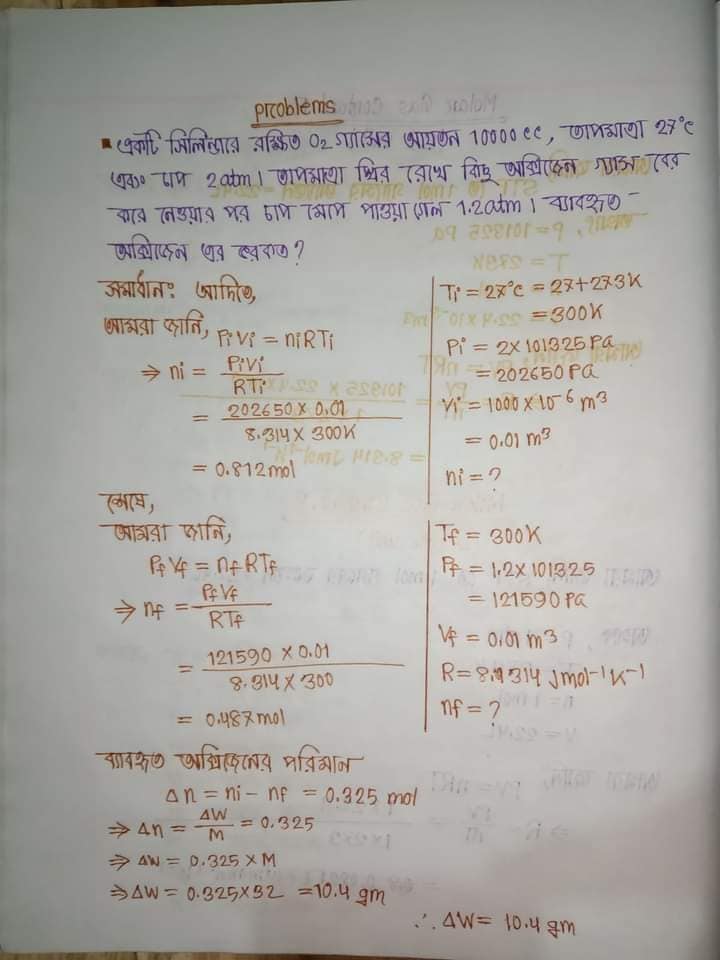 problems
▪ একটি সিলিন্ডারে রক্ষিত O₂ গ্যাসের আয়তন 10000 cc, তাপমাত্রা 27°c
এবং চাপ 2atm। তাপমাত্রা স্থির রেখে কিছু অক্সিজেন গ্যাস বের
করে নেওয়ার পর চাপ মেপে পাওয়া গেল 1.2atm। ব্যবহৃত
অক্সিজেন এর ভর কত?
সমাধান: আদিতে,
আমরা জানি, PiVi = niRTi
⇒ ni = PiVi / RTi
= 202650 × 0.01 / 8.314 × 300K
= 0.812mol
Ti = 27°c = 27+273K
= 300K
Pi = 2×101325 Pa
= 202650 Pa
Vi = 1000 × 10⁻⁶ m³
= 0.01 m³
ni = ?
শেষে,
আমরা জানি,
PfVf = nfRTf
⇒ nf = PfVf / RTf
= 121590 × 0.01 / 8.314 × 300
= 0.487mol
Tf = 300K
Pf = 1.2×101325
= 121590 Pa
Vf = 0.01 m³
R = 8.314 Jmol⁻¹K⁻¹
nf = ?
ব্যবহৃত অক্সিজেনের পরিমান
Δn = ni − nf = 0.325 mol
⇒ Δn = ΔW / M = 0.325
⇒ ΔW = 0.325 × M
⇒ ΔW = 0.325×32 = 10.4 gm
∴ ΔW = 10.4 gm